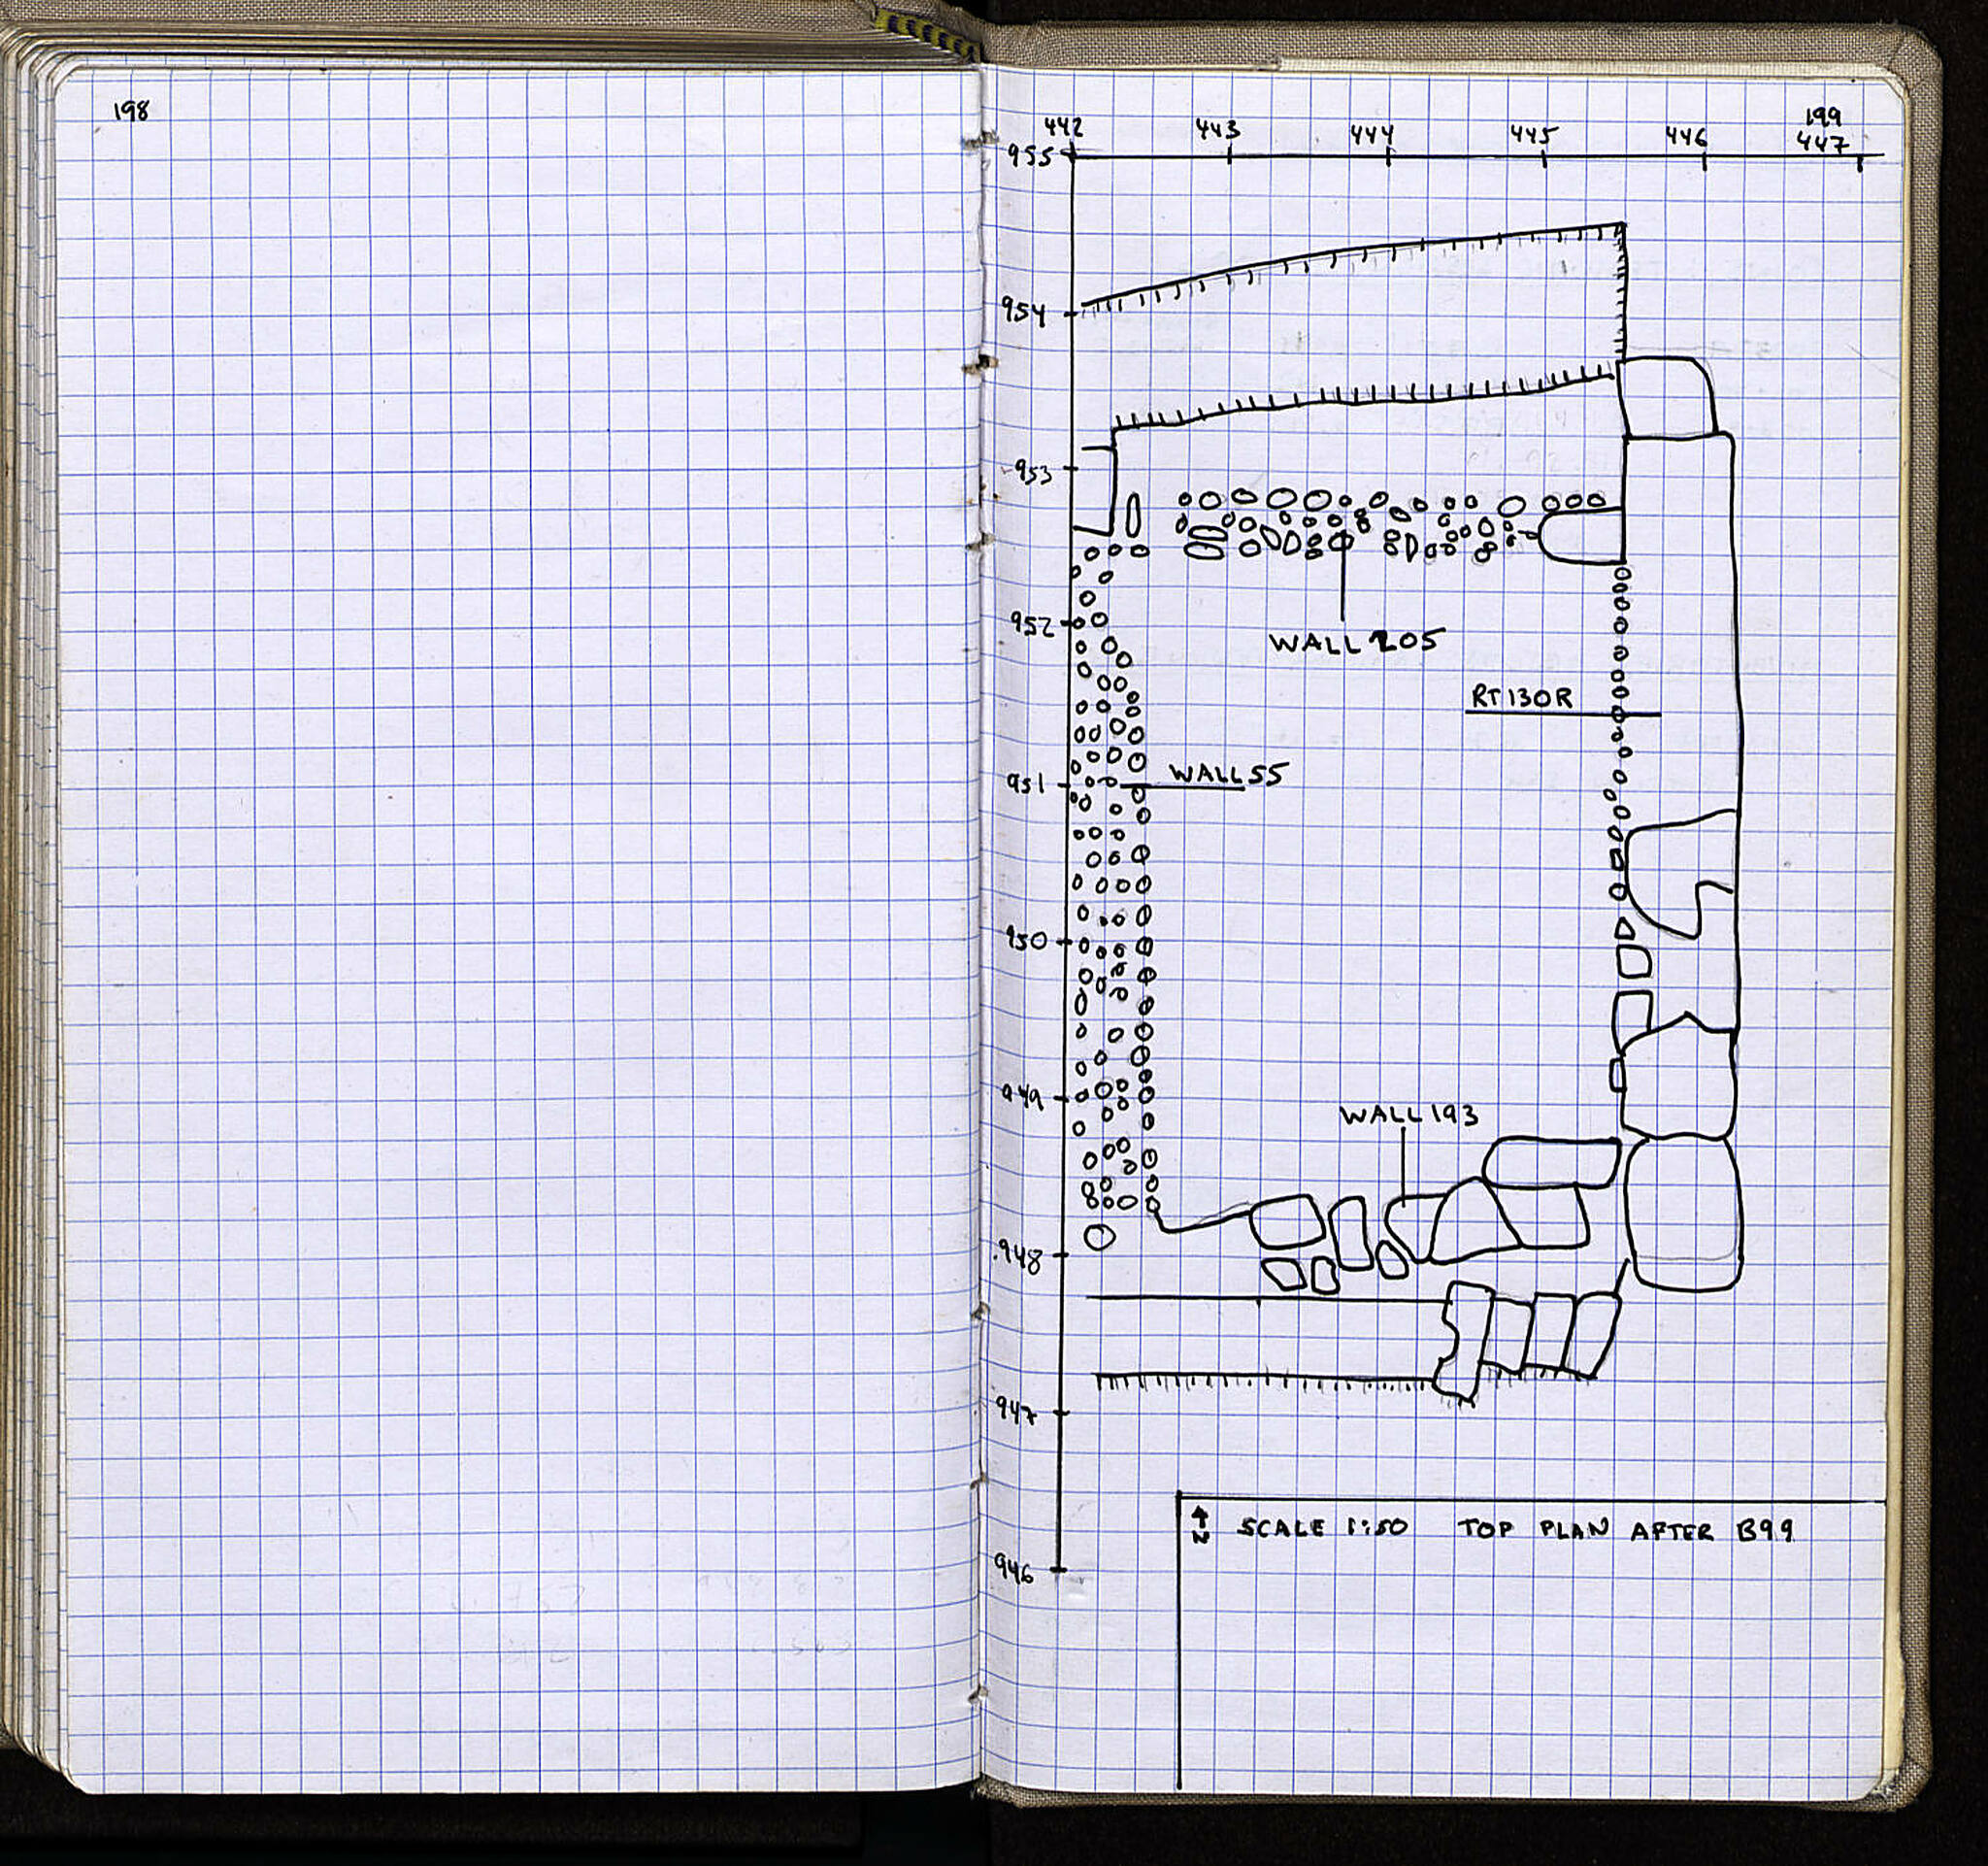 198
199
442 443 444 445 446 447
955
954
953
952
WALL 205
RT 130R
WALL 55
951
950
949
WALL 193
948
947
N SCALE 1:50 TOP PLAN AFTER B99
946